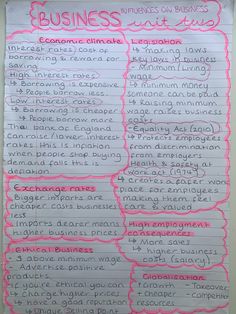 INFLUENCES ON BUSINESS
BUSINESS unit two
Economic climate
(interest rates) cost of
borrowing & reward for
saving
High interest rates)
→ Borrowing is expensive
↳ People borrow less
(Low interest rates)
→ Borrowing is cheaper
↳ People borrow more
The Bank of England
can raise/lower interest
rates this is inflation
when people stop buying
demand falls this is
deflation
Exchange rates
- Bigger imports are
cheaper costs businesses
less
- Imports dearer means
higher business prices
Ethical Business
- above minimum wage
- Advertise positive
products
If you're ethical you can
↳ Charge higher prices
↳ have a good reputation
↳ Unique Selling point
Legislation
↳ making laws
Key laws in business
- Minimum (living)
wage
↳ minimum money
someone can be paid
↳ Raising minimum
wage raises business
costs
- Equality Act (2010)
↳ Protects employees
from discrimination
from employers
- Health & safety at
work act (1974)
↳ create a safer work
place for employees
making them feel
safe & valued
High employment
consequences
↳ More sales
↳ higher business
costs (salary)
Globalisation
- Growth
- Takeover
- Cheaper
resources
- competition